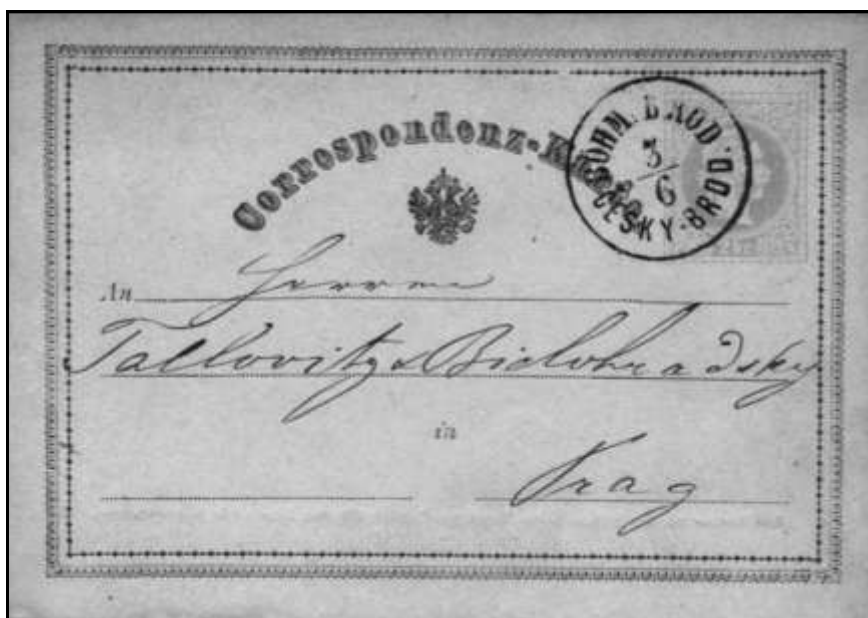 Correspondenz-Karte
BÖHM. BROD
3
6
ČESKY-BROD
An Herren
Tallovitz & Bielohradsky
in
Prag